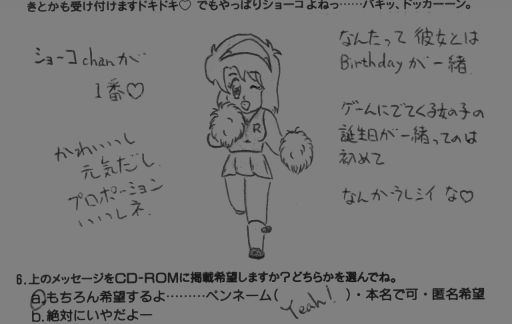 きとかも受け付けますドキドキ♡ でもやっぱりショーコよねっ……バキッ、ドッカーーン。
ショーコchanが
1番♡
かわいいし
元気だし
プロポーション
いいしネ.
R
なんたって 彼女とは
Birthdayが一緒.
ゲームにでてくる女の子の
誕生日が一緒ってのは
初めて
なんかうれしイ な♡
6.上のメッセージをCD-ROMに掲載希望しますか?どちらかを選んでね。
a.もちろん希望するよ………ペンネーム( Yeah! )・本名で可・匿名希望
b.絶対にいやだよー